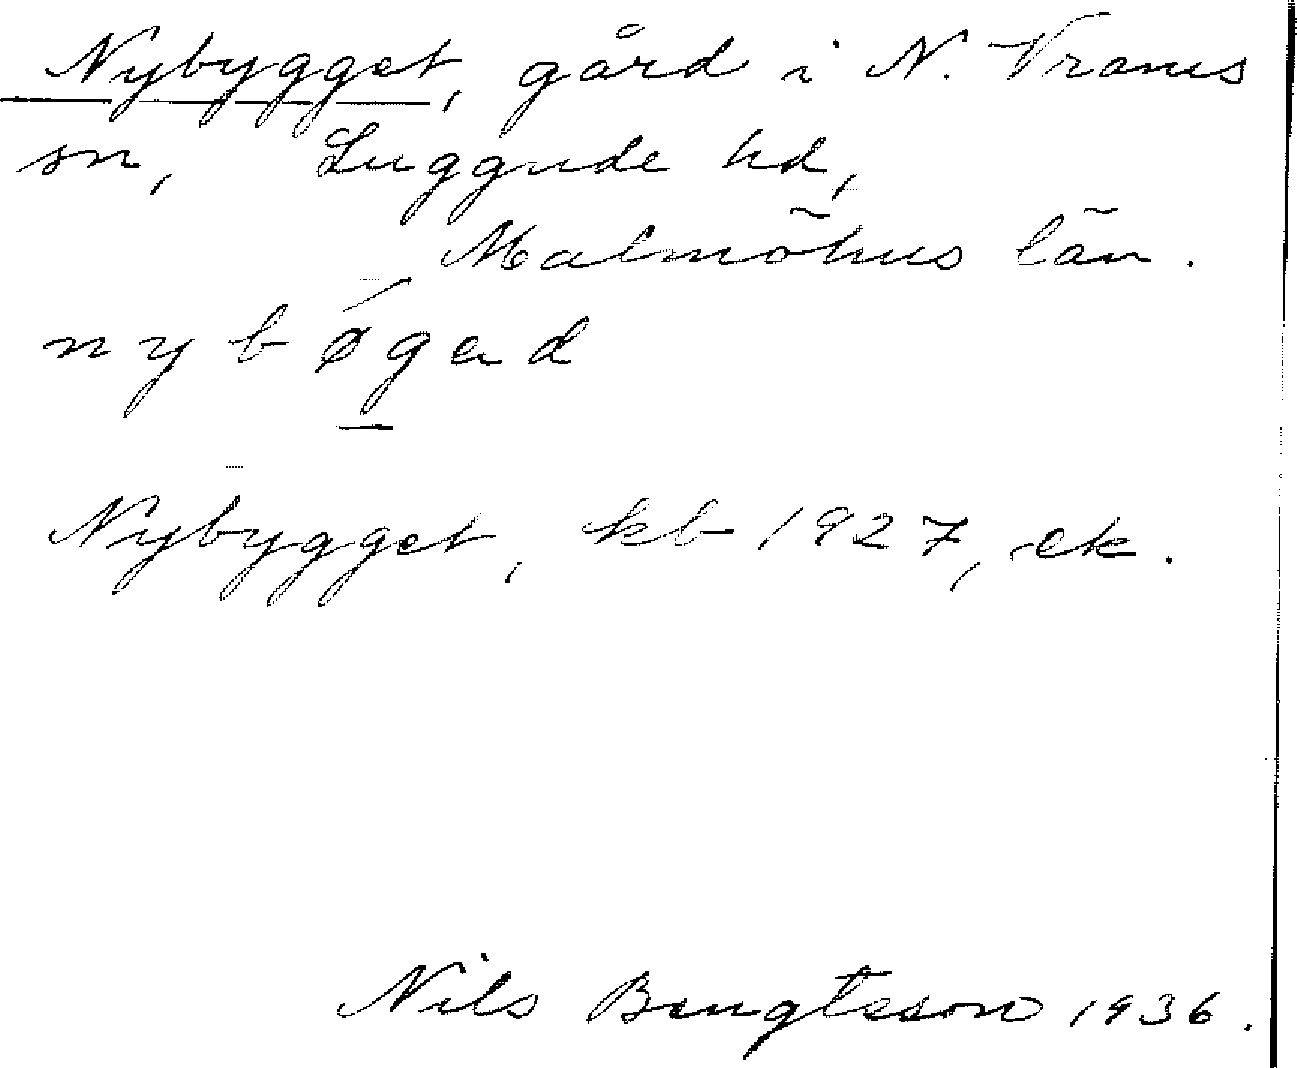 Nybygget, gård i N. Vrams
sn, Luggude hd,
Malmöhus län.
nybǿgad
Nybygget, kb 1927, ek.
Nils Bengtsson 1936.